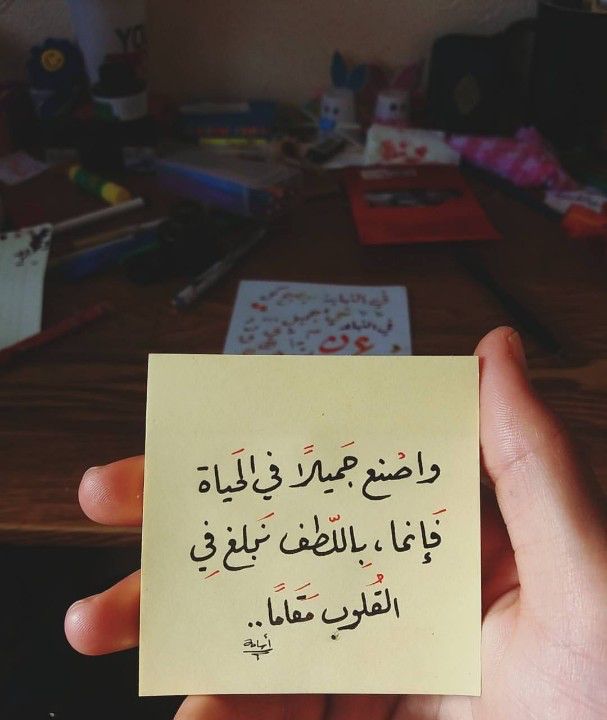 YO
واصْنع جَميلاً في الحَياة
فَإنما، بِاللّطف نَبلغ فِي
القُلوب مَقَامًا..